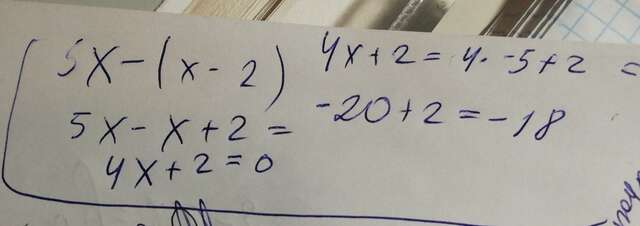 5x-(x-2)
5x-x+2=
4x+2=0
4x+2=4·-5+2=
-20+2=-18